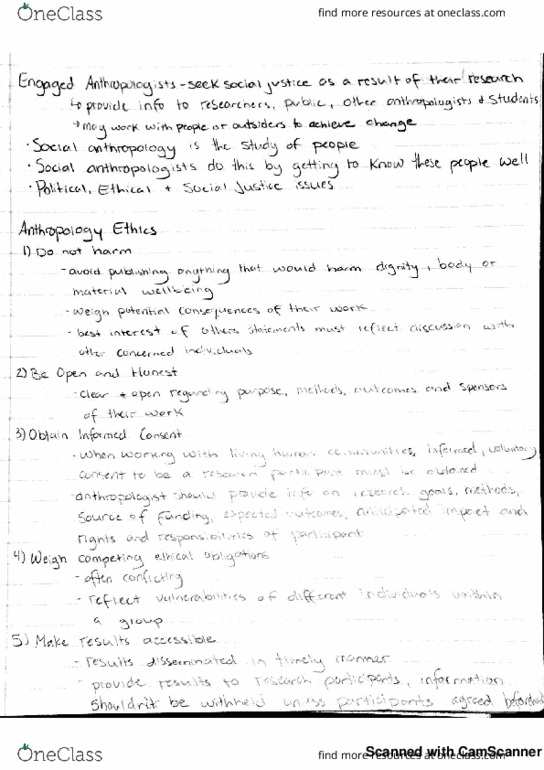 OneClass
find more resources at oneclass.com
Engaged Anthropologists - seek social justice as a result of their research
↳ provide info to researchers, public, other anthropologists & students
↳ may work with people or outsiders to achieve change
· Social anthropology is the study of people
· Social anthropologists do this by getting to know these people well
· Political, Ethical + Social Justice issues
Anthropology Ethics
1) Do not harm
- avoid publishing anything that would harm dignity, body or
material wellbeing
- weigh potential consequences of their work
- best interest of others statements must reflect discussion with
other concerned individuals
2) Be Open and Honest
- clear + open regarding purpose, methods, outcomes and sponsors
of their work
3) Obtain Informed Consent
- when working with living human communities, informed, voluntary
consent to be a research participant must be obtained
- anthropologist should provide info on research goals, methods,
source of funding, expected outcomes, anticipated impact and
rights and responsibilities of participant
4) Weigh competing ethical obligations
- often conflicting
- reflect vulnerabilities of different individuals within
a group
5) Make results accessible
- results disseminated in timely manner
- provide results to research participants, information
shouldn't be withheld unless participants agreed beforehand
OneClass
find more resources at oneclass.com
Scanned with CamScanner